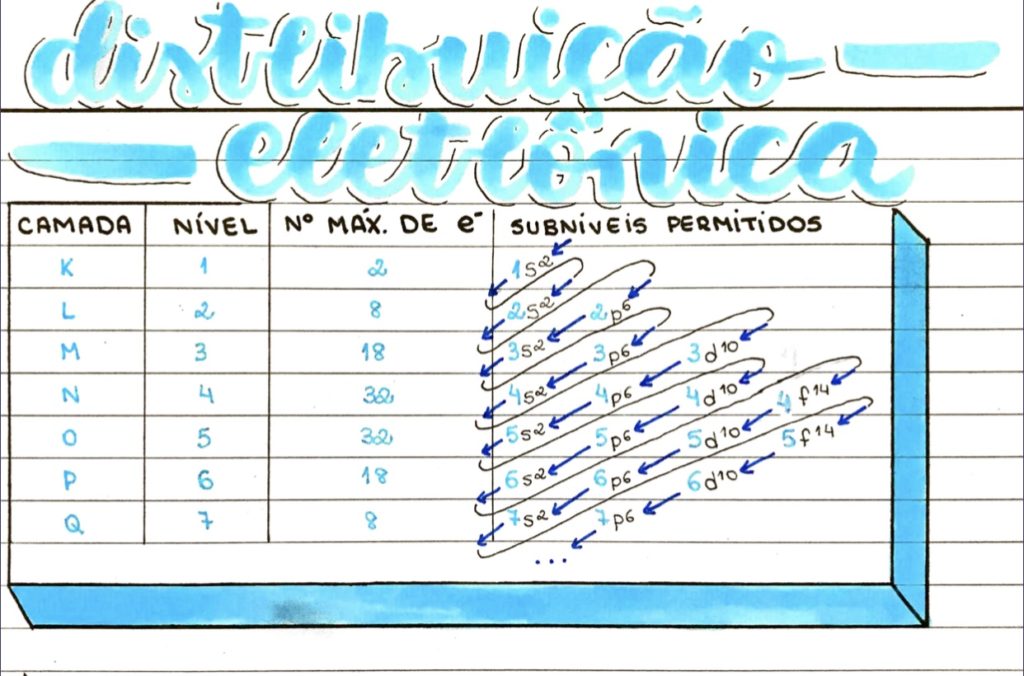 distribuição
eletrônica
CAMADA NÍVEL Nº MÁX. DE e⁻ SUBNÍVEIS PERMITIDOS
K 1 2 1s²
L 2 8 2s² 2p⁶
M 3 18 3s² 3p⁶ 3d¹⁰
N 4 32 4s² 4p⁶ 4d¹⁰ 4f¹⁴
O 5 32 5s² 5p⁶ 5d¹⁰ 5f¹⁴
P 6 18 6s² 6p⁶ 6d¹⁰
Q 7 8 7s² 7p⁶
...